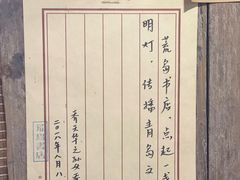 荒岛书店,点起一
明灯,传播青岛文
之孙
二〇一八年八月八
荒島書店